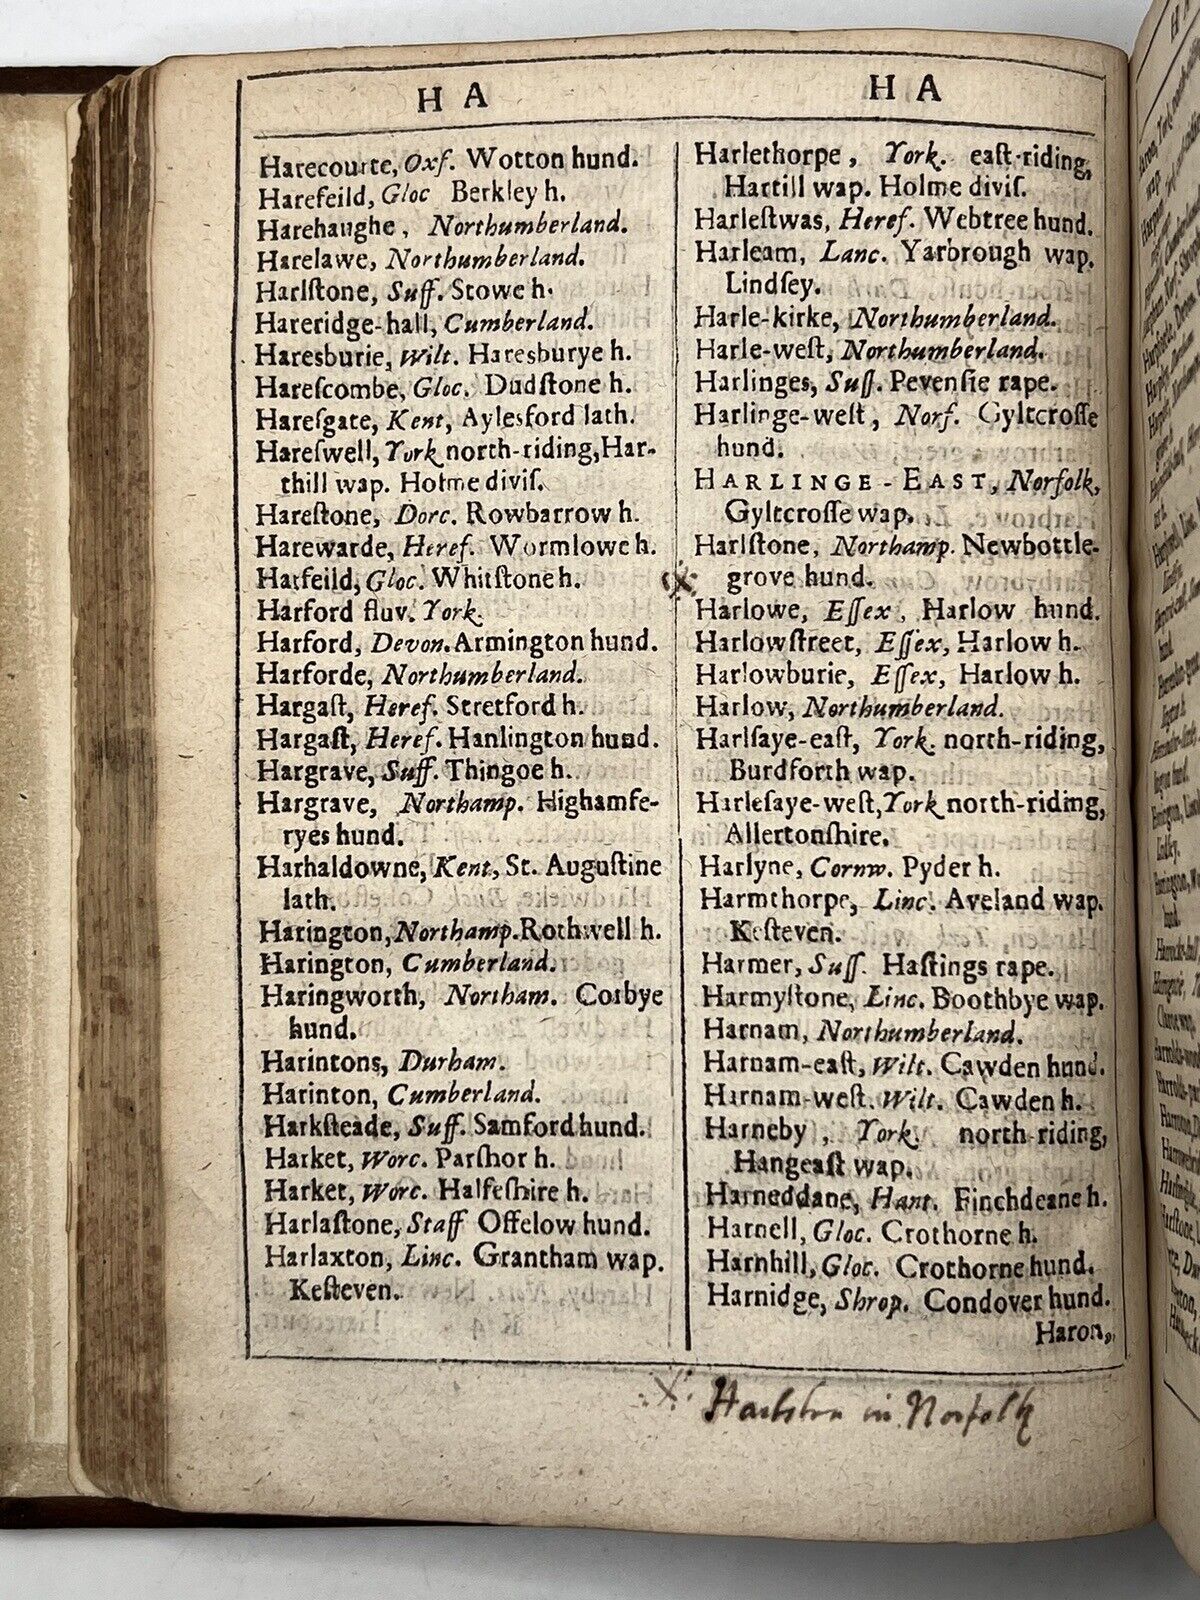 H A
Harecourte, Oxf. Wotton hund.
Harefeild, Gloc Berkley h.
Harehaughe, Northumberland.
Harelawe, Northumberland.
Harlſtone, Suff. Stowe h.
Hareridge-hall, Cumberland.
Haresburie, Wilt. Haresburye h.
Hareſcombe, Gloc. Dudſtone h.
Hareſgate, Kent, Aylesford lath.
Hareſwell, York north-riding, Har-
thill wap. Holme diviſ.
Hareſtone, Dorc. Rowbarrow h.
Harewarde, Heref. Wormlowe h.
Harfeild, Gloc. Whitſtone h.
Harford fluv. York.
Harford, Devon. Armington hund.
Harforde, Northumberland.
Hargaſt, Heref. Stretford h.
Hargaſt, Heref. Hanlington hund.
Hargrave, Suff. Thingoe h.
Hargrave, Northamp. Highamfe-
ryes hund.
Harhaldowne, Kent, St. Auguſtine
lath.
Harington, Northamp. Rothwell h.
Harington, Cumberland.
Haringworth, Northam. Corbye
hund.
Harintons, Durham.
Harinton, Cumberland.
Harkſteade, Suff. Samford hund.
Harket, Worc. Parſhor h.
Harket, Worc. Halfeſhire h.
Harlaſtone, Staff Offelow hund.
Harlaxton, Linc. Grantham wap.
Keſteven.
H A
Harlethorpe, York. eaſt-riding,
Hartill wap. Holme diviſ.
Harleſtwas, Heref. Webtree hund.
Harleam, Lanc. Yarbrough wap.
Lindſey.
Harle-kirke, Northumberland.
Harle-weſt, Northumberland.
Harlinges, Suſſ. Pevenſie rape.
Harlinge-weſt, Norf. Gyltcroſſe
hund.
HARLINGE-EAST, Norfolk,
Gyltcroſſe wap.
Harlſtone, Northamp. Newbottle-
grove hund.
Harlowe, Eſſex, Harlow hund.
Harlowſtreet, Eſſex, Harlow h.
Harlowburie, Eſſex, Harlow h.
Harlow, Northumberland.
Harlſaye-eaſt, York. north-riding,
Burdforth wap.
Harleſaye-weſt, York north-riding,
Allertonſhire.
Harlyne, Cornw. Pyder h.
Harmthorpe, Linc. Aveland wap.
Keſteven.
Harmer, Suſſ. Haſtings rape.
Harmyſtone, Linc. Boothbye wap.
Harnam, Northumberland.
Harnam-eaſt, Wilt. Cawden hund.
Harnam-weſt. Wilt. Cawden h.
Harneby, York. north-riding,
Hangeaſt wap.
Harneddane, Hant. Finchdeane h.
Harnell, Gloc. Crothorne h.
Harnhill, Gloc. Crothorne hund.
Harnidge, Shrop. Condover hund.
Haron,
X Harlston in Norfolk